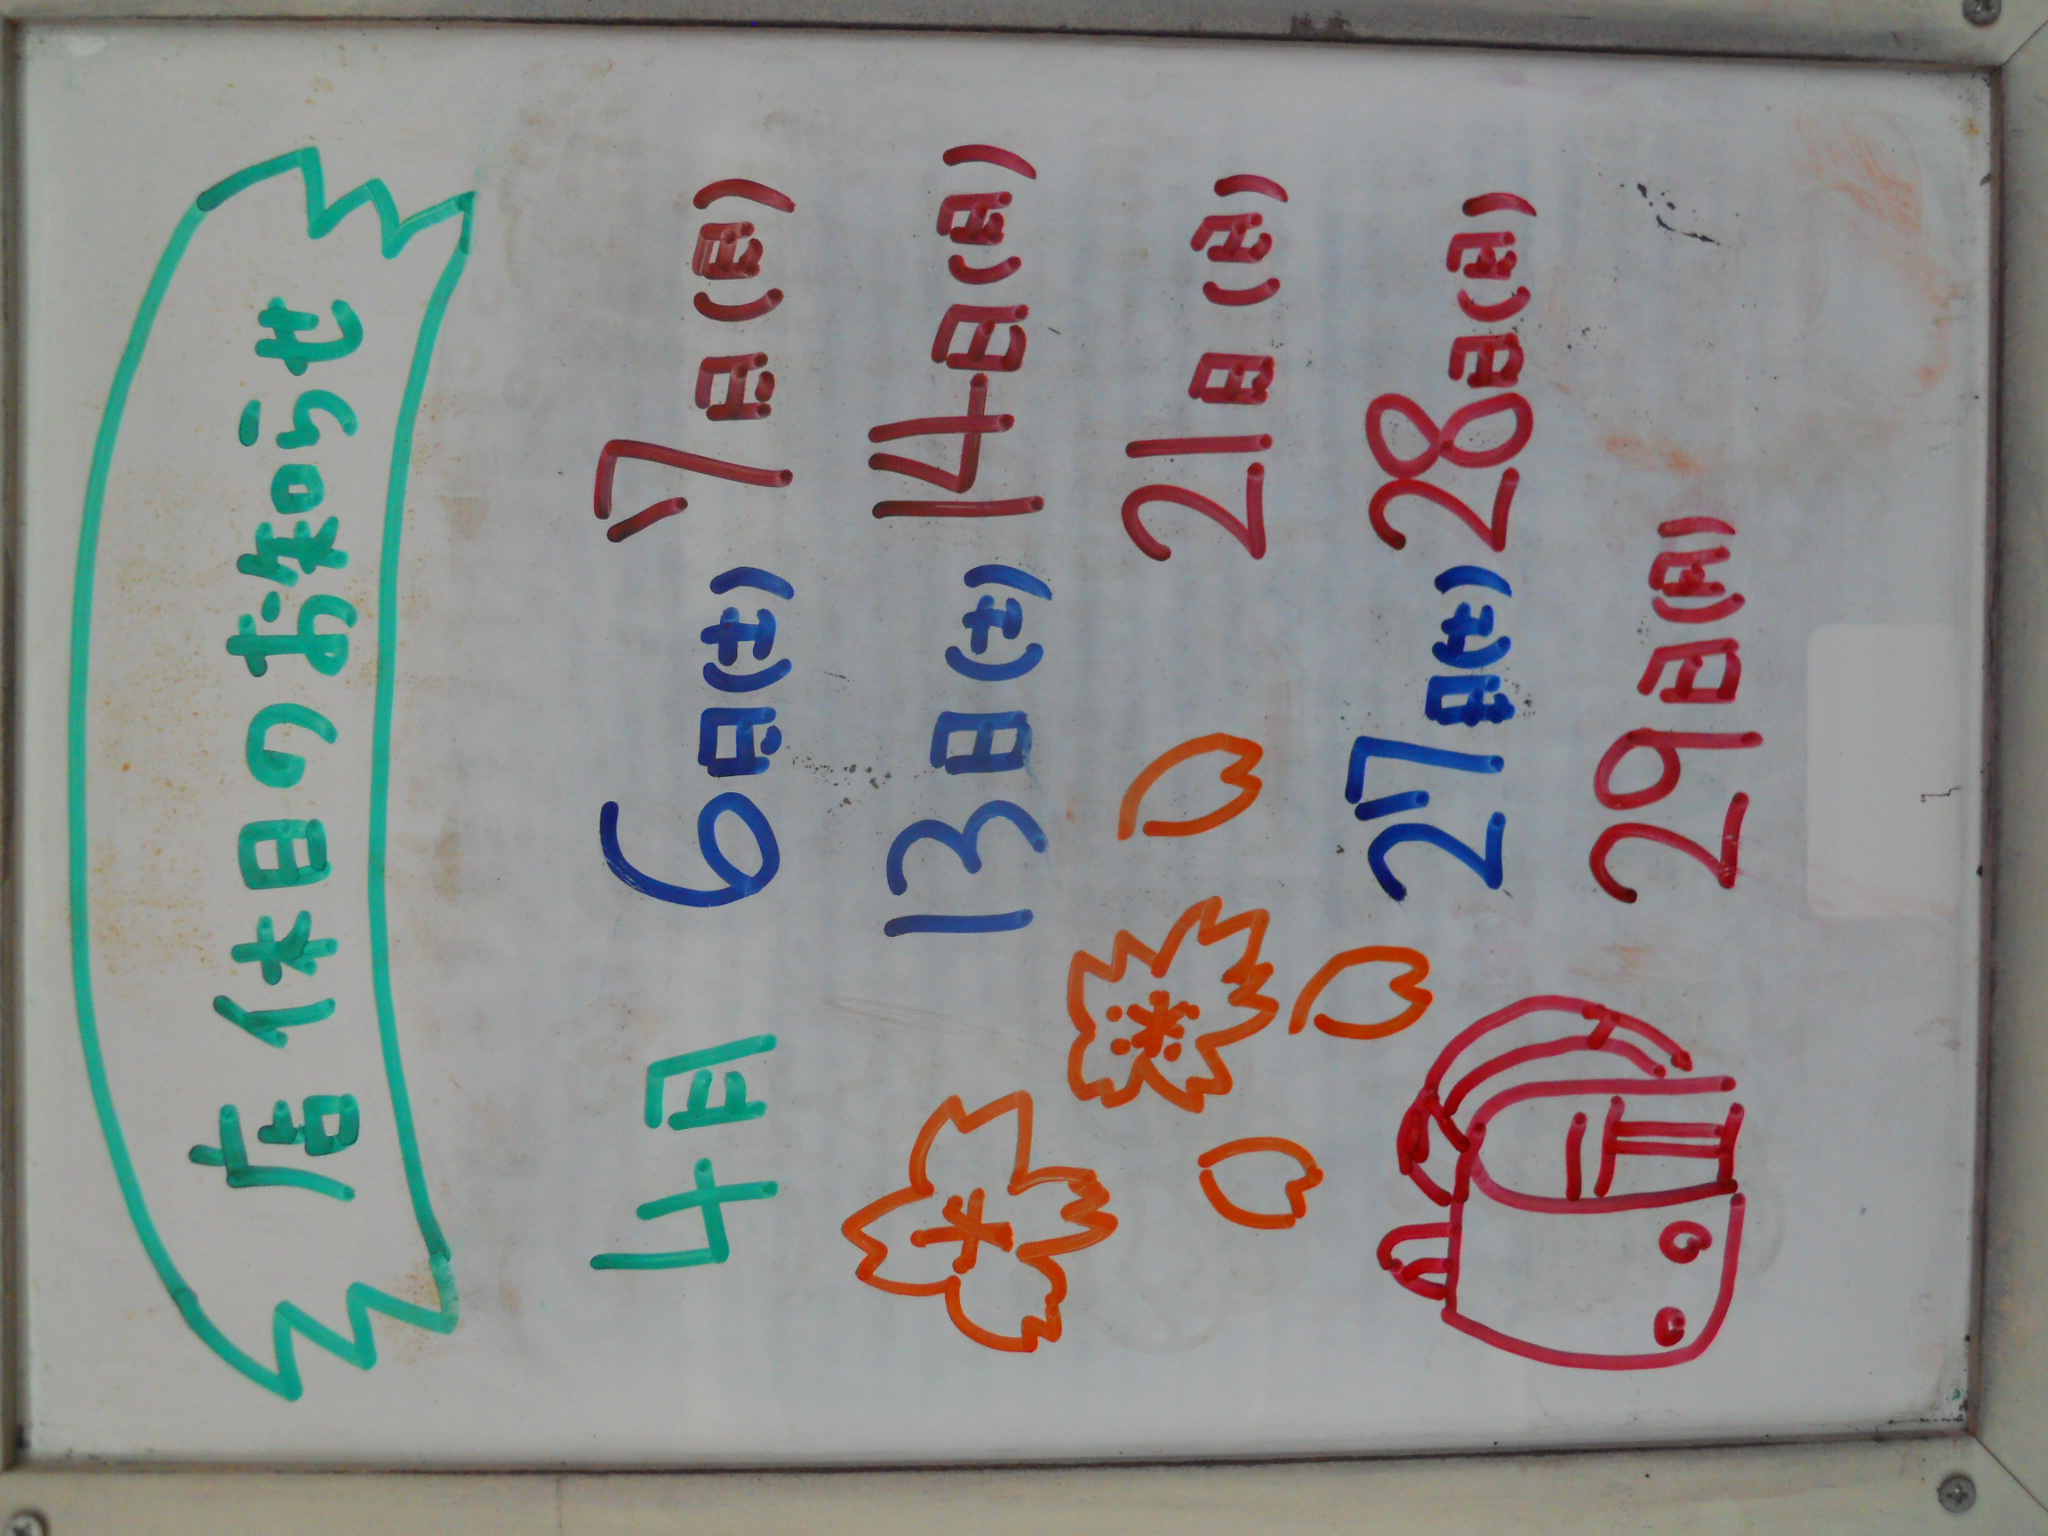 店休日のお知らせ
4月 6日(土) 7日(日)
13日(土) 14日(日)
21日(日)
27日(土) 28日(日)
29日(月)